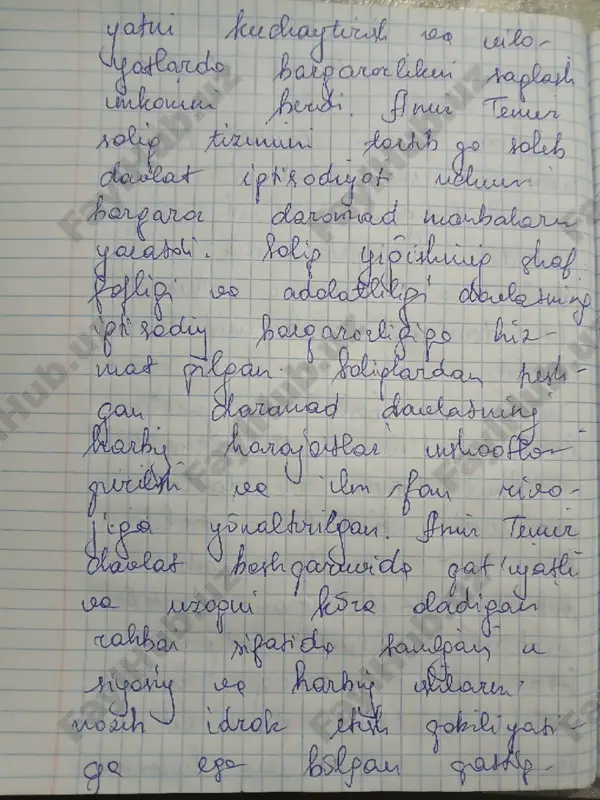 yatni kuchaytirish va vilo-
yatlarda barqarorlikni saqlash
imkonini berdi. Amir Temur
soliq tizimini tartibga solib
davlat iqtisodiyoti uchun
barqaror daromad manbalarini
yaratdi. Soliq yig'ishning shaf
fofligi va adolatliligi davlatning
iqtisodiy barqarorligiga hiz-
mat qilgan. Soliqlardan tush-
gan daromad davlatning
harbiy harajatlari inshootlar
qurilishi va ilm-fan rivo-
jiga yo'naltirilgan. Amir Temur
davlat boshqaruvida qat'iyatli
va uzoqni ko'ra oladigan
rahbar sifatida tanilgan u
siyosiy va harbiy ishlarni
idrok etish qobiliyati-
ga ega bo'lgan
FayllHub.uz